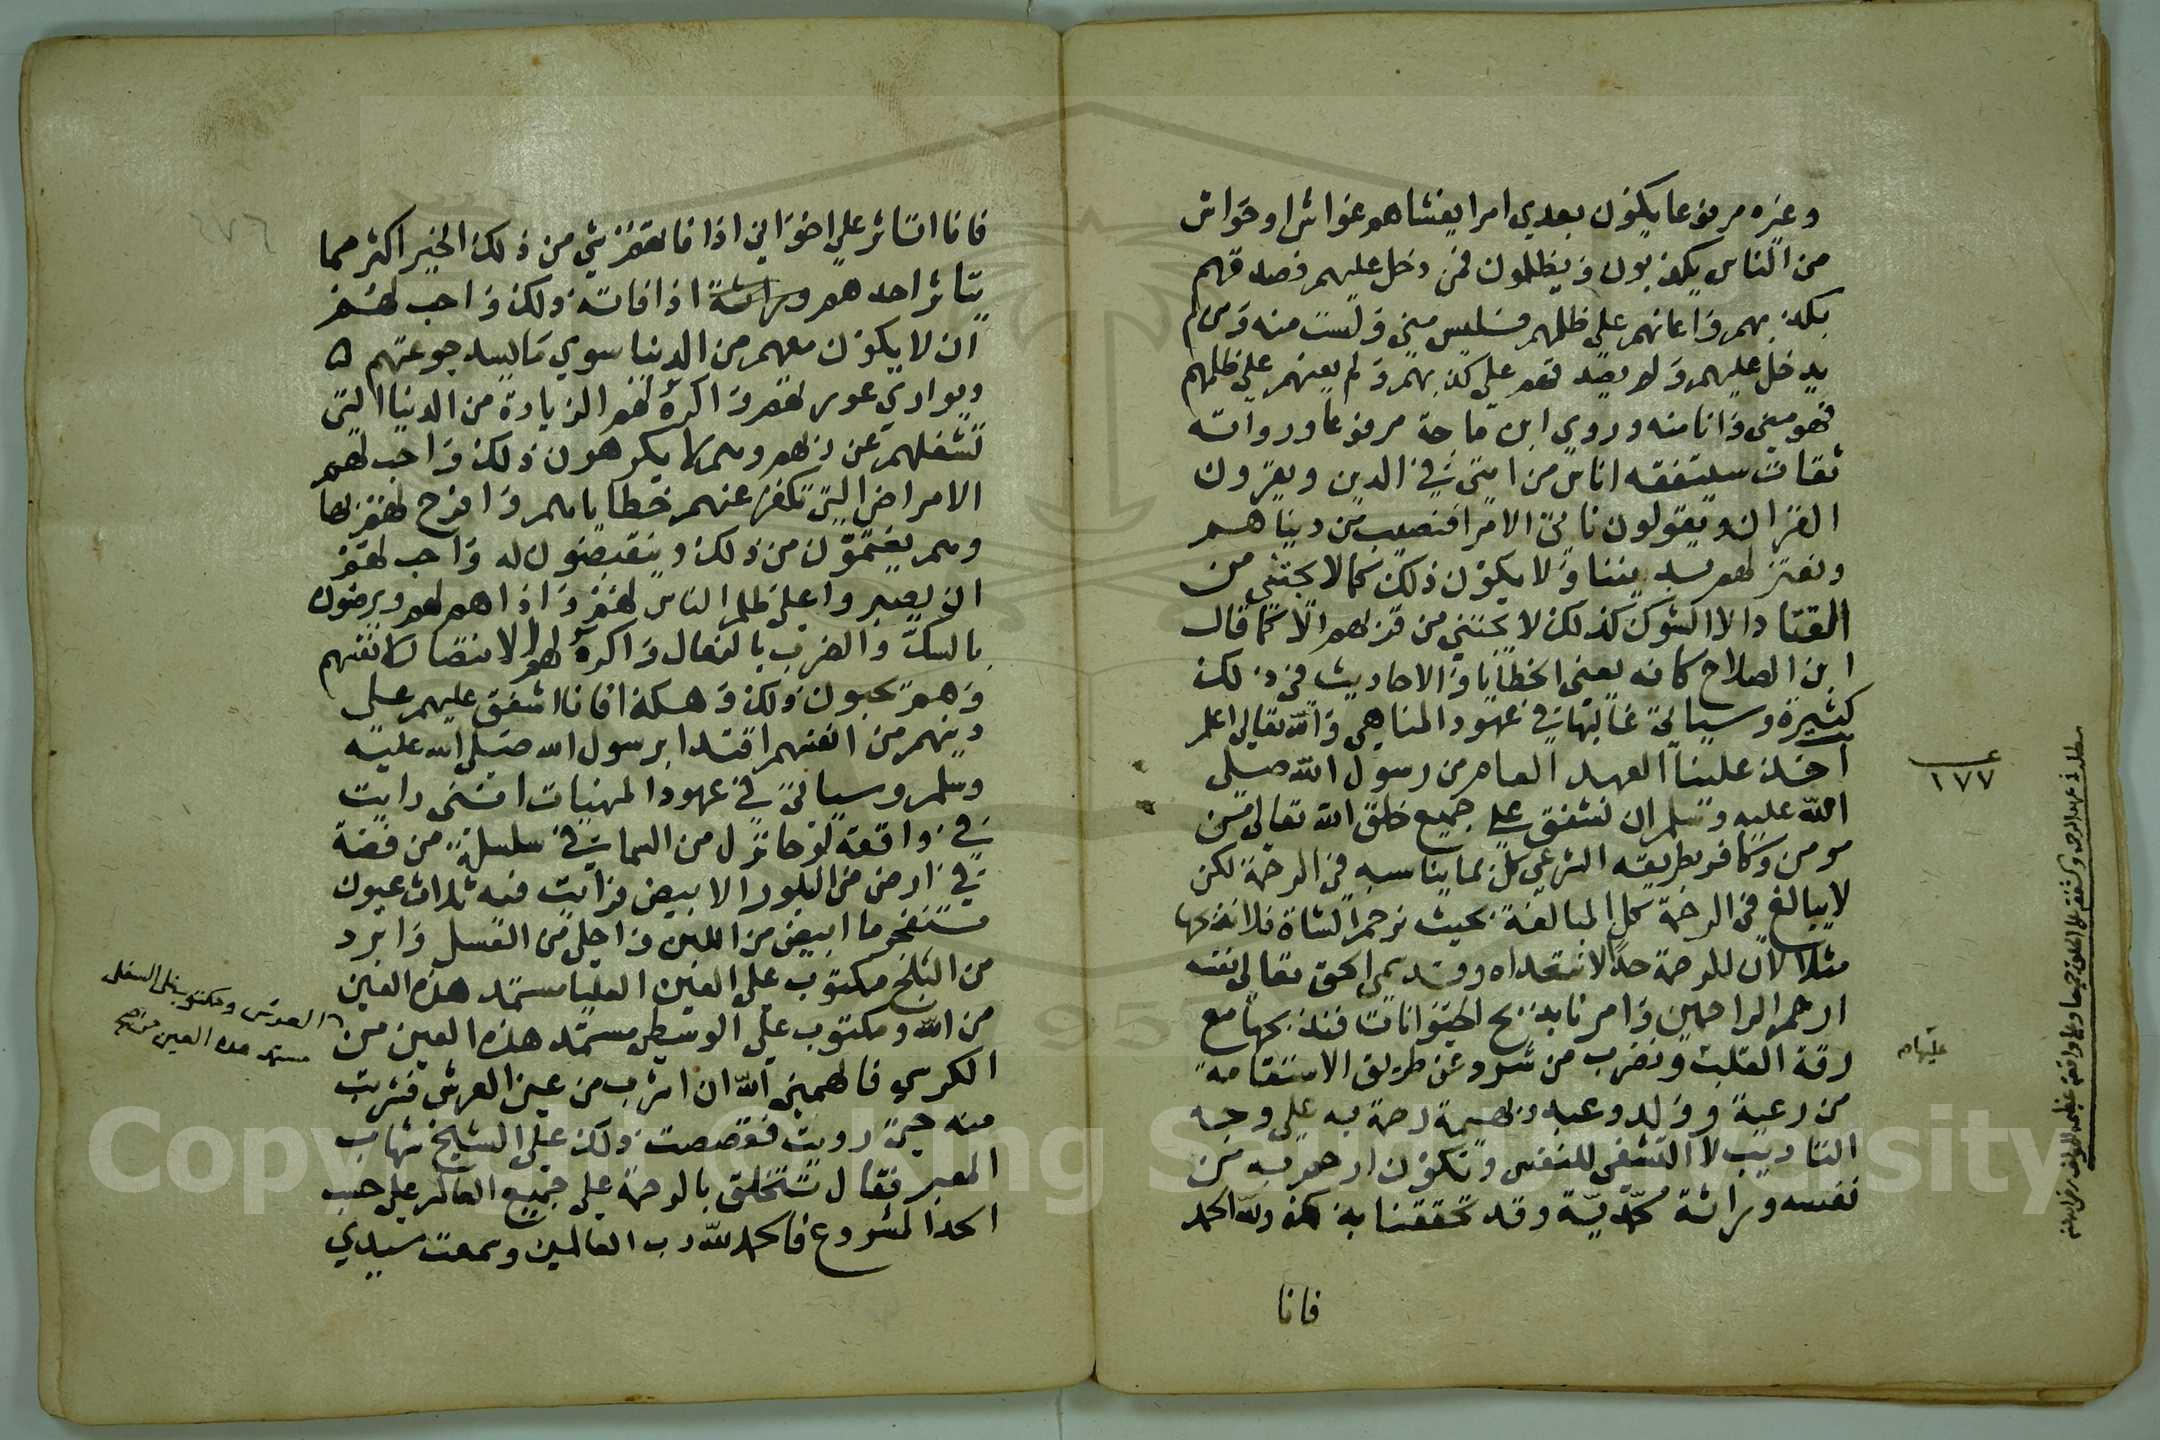 وغيره مرفوعا يكون بعدي امرا يغشاهم غواش او حواش
من الناس يكذبون ويظلمون فمن دخل عليهم فصدقهم
بكذبهم واعانهم على ظلمهم فليس مني ولست منه ومن لم
يدخل عليهم ولم يصدقهم على كذبهم ولم يعنهم على ظلمهم
فهو مني وانا منه وروى ابن ماجة مرفوعا ورواته
ثقات سيتفقه اناس من امتي في الدين ويقرون
القران ويقولون ناتي الامرا فنصيب من دنياهم
ونعتزلهم بديننا ولا يكون ذلك كما لا يجتني من
القتاد الا الشوك كذلك لا يجتني من قربهم الا كما قال
ابن الصلاح كانه يعني الخطايا والاحاديث في ذلك
كثيرة وسياتي غالبها في عهود المناهي والله تعالى اعلم
اخذ علينا العهد العام من رسول الله صلى
الله عليه وسلم ان نشفق على جميع خلق الله تعالى من
مومن وكافر بطريقه الشرعي كل بما يناسبه في الرحمة لكن
لا يبالغ في الرحمة كل المبالغة بحيث نرحم الشاة فلا نذبحها
مثلا لان للرحمة حدا لا نتعداه وقد سمى الحق تعالى نفسه
ارحم الراحمين وامرنا بذبح الحيوانات فنذبحها مع
رقة القلب ونضرب من شرد عن طريق الاستقامة
من رعية وولد وعبد وبهيمة رحمة به على وجه
التاديب لا التشفي للنفس ونكون ارحم به من
نفسه وراثة محمدية وقد تحققنا بذلك ولله الحمد
فانا
عـــ
١٧٧
عليها م
فانا اتاثر على اخواني اذا فاتهم شي من ذلك الخير اكثر مما
يتاثر احدهم وراثة اذا فاته ذلك واحب لهم
ان لا يكون معهم من الدنيا سوي ما يسد جوعتهم ٥
ويواري عورتهم واكره لهم الزيادة من الدنيا التي
تشغلهم عن ربهم وهم لا يكرهون ذلك واحب لهم
الامراض التي تكفر عنهم خطاياهم وافرح لهم بها
وهم يغتمون من ذلك وينقبضون له واحب لهم
ان يصبروا على ظلم الناس لهم واذاهم لهم ويرضون
بالسك والضرب بالنعال واكره لهم الانتصار لانفسهم
وهم يحبون ذلك وهكذا فانا اشفق عليهم على
دينهم من انفسهم اقتدا برسول الله صلى الله عليه
وسلم وسياتي في عهود المنهيات انني رايت
في واقعة لوحا نزل من السما في سلسلة من فضة
في ارض من البلور الابيض فرايت فيه ثلاث عيون
تتفجر ما ابيض من اللبن واحلى من العسل وابرد
من الثلج مكتوب على العين العليا مستمد هذه العين
من الله ومكتوب على الوسطى مستمد هذه العين من
الكرسي فالهمني الله ان اشرب من عين العرش فشربت
منه حتى رويت فقصصت ذلك على الشيخ شهاب
المعبر فقال تتخلق بالرحمة على جميع العالم على حسب
الحد المشروع فالحمد لله رب العالمين وسمعت سيدي
العرش ومكتوب على السفلى
مستمد هذه العين من صح